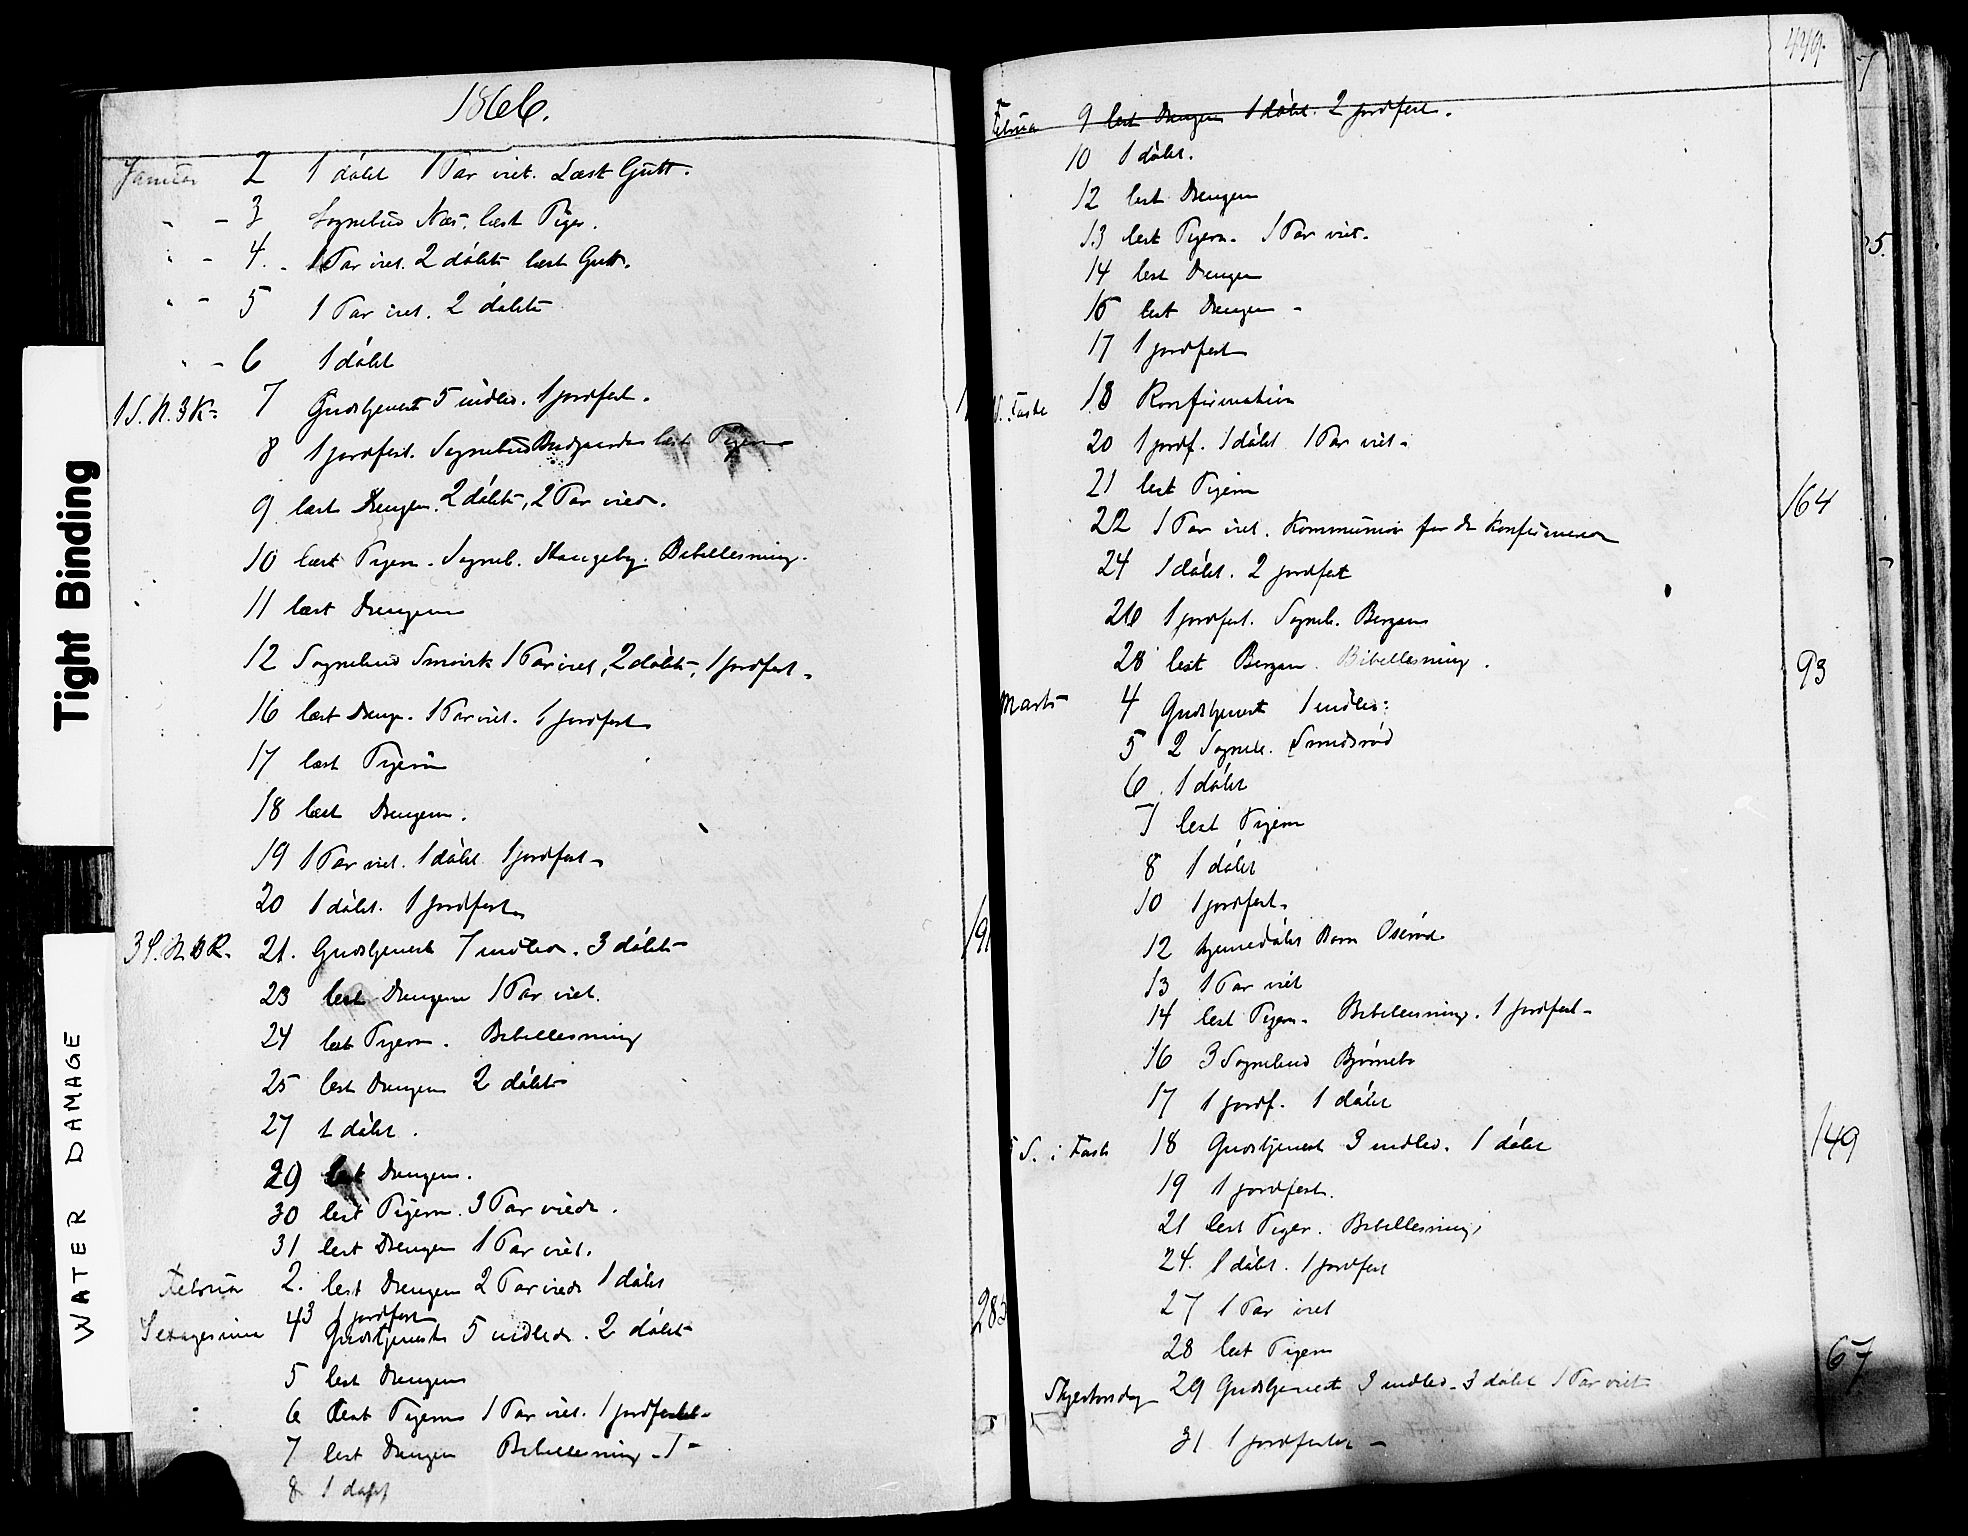 1866.
Januar 2 1 døbt 1 Par viet. Læst Gutt.
" - 3 Sognebud Næs. læst Piger.
" - 4. 1 Par viet. 2 døbte læst Gutt.
" - 5 1 Par viet. 2 døbte
" - 6 1 døbt
1 S. N. 3 K. 7 Gudstjeneste 5 indled. 1 jordfest.
8 1 jordfest. Sognebud læst Pigerne
9 læst Drengen. 2 døbte, 2 Par viede.
10 læst Pigern. Sogneb. Haugeby. Bibellesning.
11 læst Drengene
12 Sognebud Smørvik 1 Par viet, 2 døbte, 1 jordfest.
16 læst Drenge. 1 Par viet. 1 jordfest
17 læst Pigerne
18 læst Drengene.
19 1 Par viet. 1 døbt. 1 jordfest.
20 1 døbt. 1 jordfest.
3 S. N. 3 K. 21. Gudstjeneste 7 indled. 3 døbte
23 lest Drengene 1 Par viet.
24 lest Pigern. Bibellesning
25 lest Drengene 2 døbte
27 1 døbt.
29 lest Drengene.
30 lest Pigern. 3 Par viede.
31 lest Drengen 1 Par viet.
Februar 2. lest Drengene 2 Par viede 1 døbt
3 1 jordfest
Sexagesima 4 Gudstjeneste 5 indlede. 2 døbte
5 lest Drengene
6 lest Pigerne 1 Par viet. 1 jordfestet.
7 lest Drengen Bibellesning
8 1 døbt
191
285
449.
Februar 9 lest Drengen 1 døbt. 2 jordfest.
10 1 døbt.
12 lest Drengene
13 lest Pigern. 1 Par viet.
14 lest Drengen
16 lest Drengene
17 1 jordfest
1 S. Faste 18 Konfirmation
20 1 jordf. 1 døbt 1 Par viet.
21 lest Pigern
22 1 Par viet. Kommunion for de konfirmerede
24 1 døbt. 2 jordfest
26 1 jordfest. Sogneb. Bergan
28 lest Bergan. Bibellesning.
Marts 4 Gudstjeneste 1 indled:
5 2 Sogneb. Smidsrød
6 1 døbt
7 lest Pigern
8 1 døbt
10 1 jordfest.
12 hjemmedøbt Barn Oserød
13 1 Par viet
14 lest Pigern. Bibellesning. 1 jordfest.
16 3 Sognebud Bjørnebo
17 1 jordf. 1 døbt
5 S. i Faste 18 Gudstjeneste 3 indled. 1 døbt
19 1 jordfest.
21 lest Piger. Bibellesning.
24. 1 døbt. 1 jordfest
27 1 Par viet
28 lest Pigern
Skjertorsdag 29 Gudstjeneste 3 indled. 3 døbt 1 Par viet
31 1 jordfestet
164
93
149
67
7
5.
Tight Binding
WATER DAMAGE